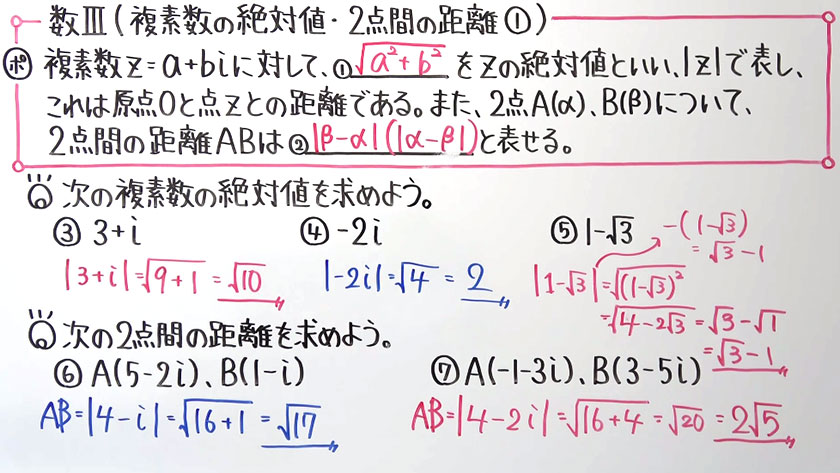 数Ⅲ(複素数の絶対値・2点間の距離①)
ポ 複素数z=a+biに対して、①√(a²+b²)をzの絶対値といい、|z|で表し、
これは原点Oと点zとの距離である。また、2点A(α)、B(β)について、
2点間の距離ABは②|β-α|(|α-β|)と表せる。
次の複素数の絶対値を求めよう。
③ 3+i
|3+i|=√(9+1)=√10
④ -2i
|-2i|=√4=2
⑤ 1-√3
-(1-√3)
=√3-1
|1-√3|=√((1-√3)²)
=√(4-2√3)=√3-√1
=√3-1
次の2点間の距離を求めよう。
⑥ A(5-2i)、B(1-i)
AB=|4-i|=√(16+1)=√17
⑦ A(-1-3i)、B(3-5i)
AB=|4-2i|=√(16+4)=√20=2√5